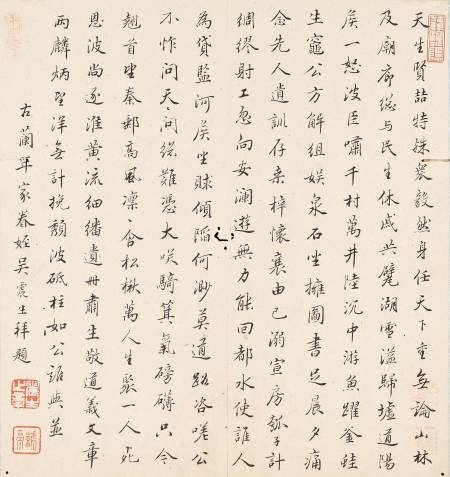 天生賢喆特殊衆毅然身任天下重無論山林
及廟廊総与民生休戚共甓湖雪溢歸墟道陽
矦一怒波臣嘯千村萬井陸沉中游魚躍釜蛙
生竈公方解組娛泉石坐擁圖書足晨夕痛
念先人遺訓存桑梓懷襄由己溺宣房瓠子計
綢繆射工忽向安瀾遊無力能回都水使誰人
為貸監河矦坐賕傾陷何渺莫道路咨嗟公
不怍問天天問総難憑大笑騎箕氣磅礴只今
翹首望秦郵高風凛凛含松楸萬人生聚一人死
恩波尚逐淮黄流細繙遺冊肅生敬道義文章
兩麟炳望洋無計挽頽波砥柱如公詢典並
古蘭年家眷姪吳震生拜題